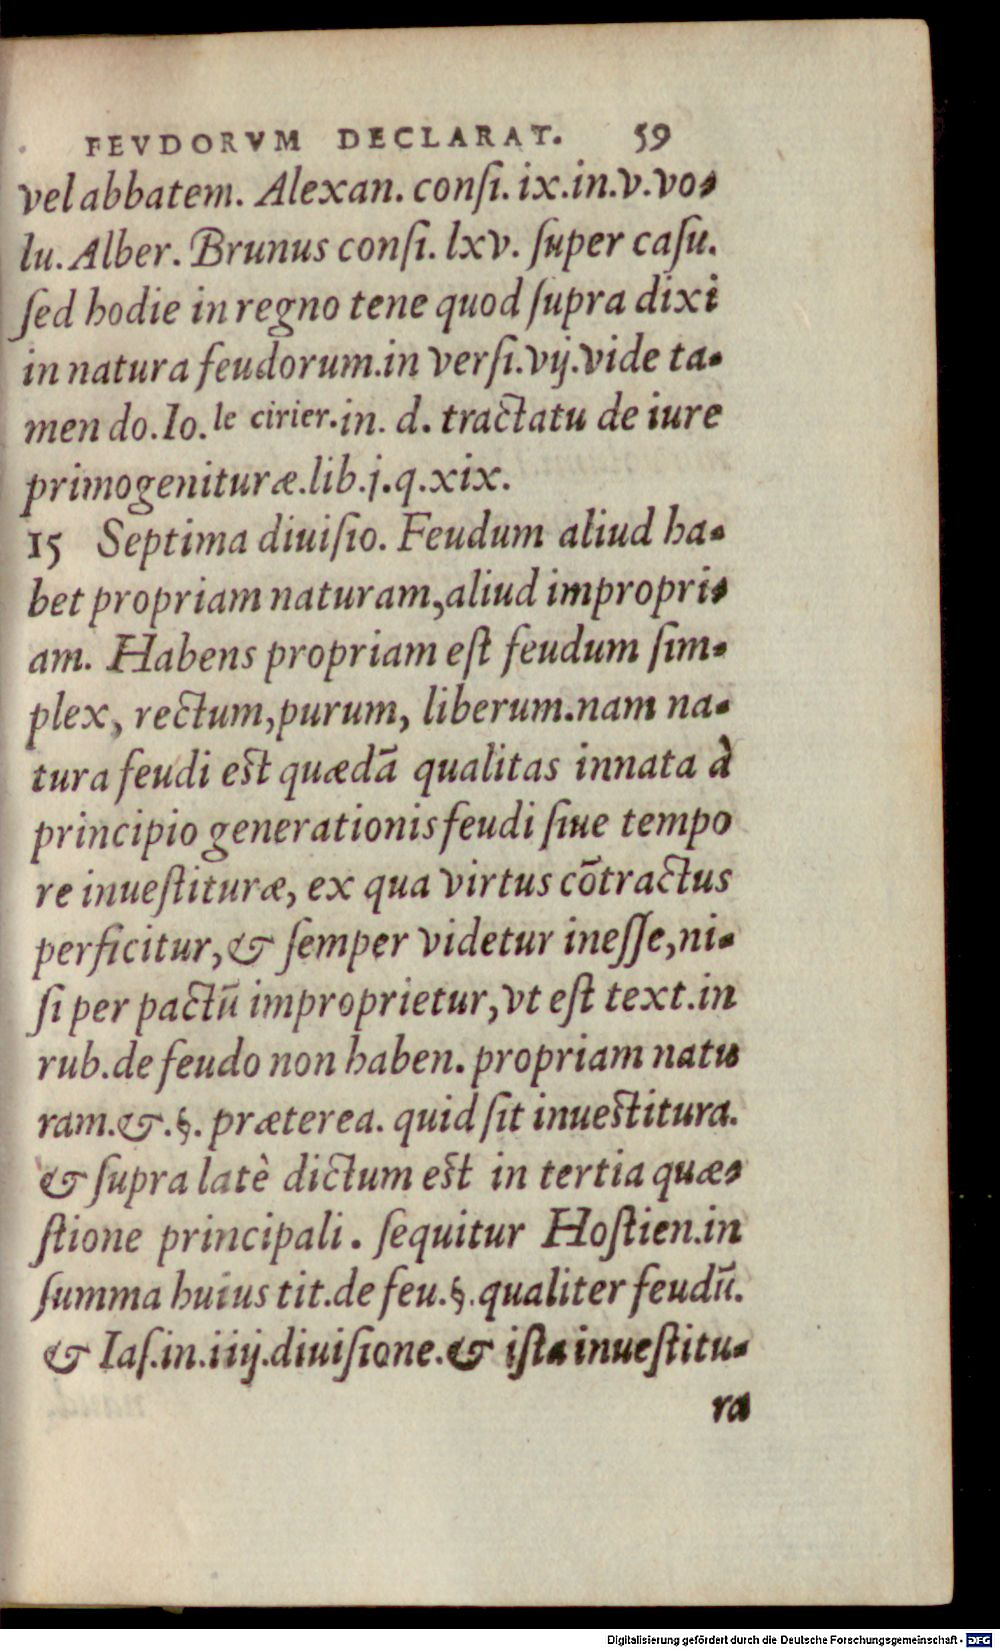 FEVDORVM DECLARAT. 59
vel abbatem. Alexan. conſi. ix.in.v.vo-
lu. Alber. Brunus conſi. lxv. ſuper caſu.
ſed hodie in regno tene quod ſupra dixi
in natura feudorum.in verſi.vij.vide ta-
men do.Io.le cirier.in. d. tractatu de iure
primogenituræ.lib.j.q.xix.
15 Septima diuiſio. Feudum aliud ha-
bet propriam naturam,aliud impropri-
am. Habens propriam eſt feudum ſim-
plex, rectum,purum, liberum.nam na-
tura feudi eſt quædã qualitas innata à
principio generationis feudi ſiue tempo
re inueſtituræ, ex qua virtus cõtractus
perficitur,& ſemper videtur ineſſe,ni-
ſi per pactũ improprietur,vt eſt text.in
rub.de feudo non haben. propriam natu
ram.&.§. præterea. quid ſit inueſtitura.
& ſupra latè dictum eſt in tertia quæ-
ſtione principali. ſequitur Hoſtien.in
ſumma huius tit.de feu.§.qualiter feudũ.
& Iaſ.in.iiij.diuiſione.& iſta inueſtitu-
ra
Digitalisierung gefördert durch die Deutsche Forschungsgemeinschaft - DFG